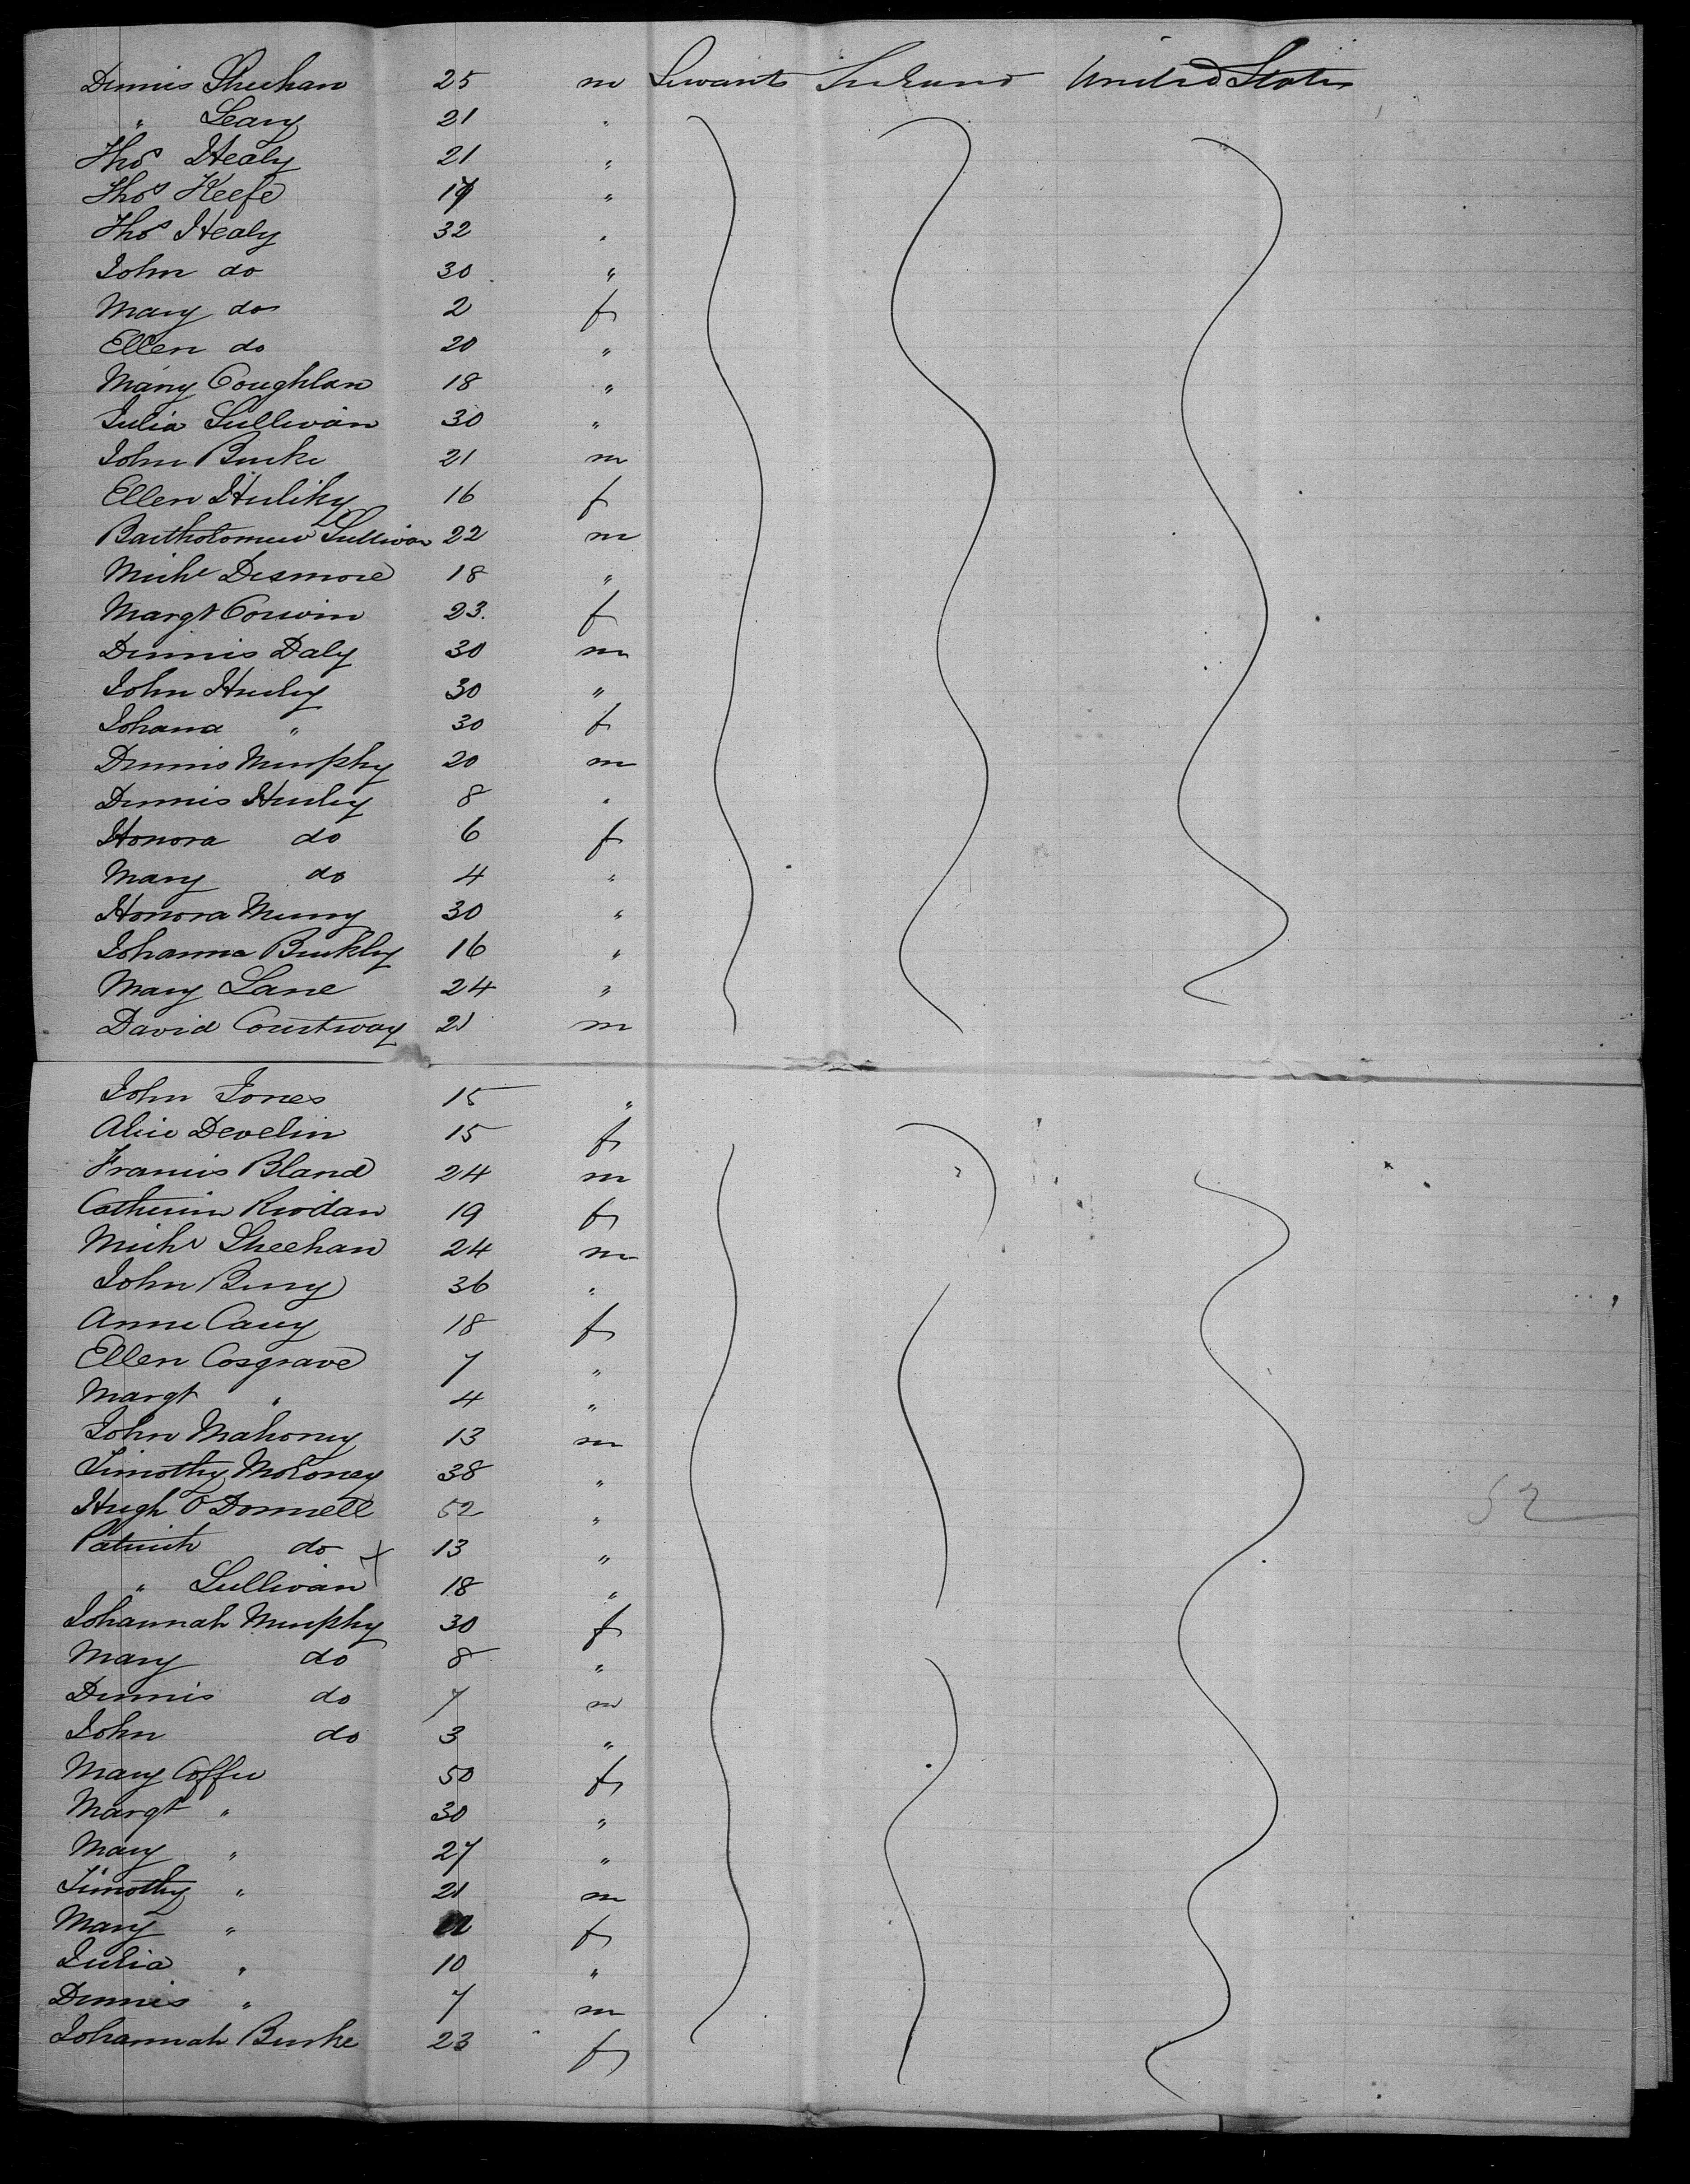 Dennis Sheehan 25 m Servants Ireland United States
" Leary 21 "
Thos Healy 21 "
Thos Keefe "
Thos Healy 32 "
John do 30 "
Mary do 2 f
Ellen do 20 "
Mary Coughlan 18 "
Julia Sullivan 30 "
John Burke 21 m
Ellen Huliky 16 f
Bartholomew Sullivan 22 m
Michl Desmore 18 "
Margt Corwin 23. f
Dennis Daly 30 m
John Hurley 30 "
Johana " 30 f
Dennis Murphy 20 m
Dennis Hurley 8 "
Honora do 6 f
Mary do 4 "
Honora Murry 30 "
Johanna Buckley 16 "
Mary Lane 24 "
David Courtway 21 m
John Jones 15 "
Alice Develin 15 f
Francis Bland 24 m
Catherine Riordan 19 f
Michl Sheehan 24 m
John Berry 36 "
Anne Carey 18 f
Ellen Cosgrave 7 "
Margt " 4 "
John Mahoney 13 m
Timothy Moloney 38 "
Hugh O'Donnell 52 "
52
Patrick do x 13 "
" Sullivan 18 "
Johannah Murphy 30 f
Mary do 8 "
Dennis do 7 m
John do 3 "
Mary Coffee 50 f
Margt " 30 "
Mary " 27 "
Timothy " 21 m
Mary " f
Julia " 10 "
Dennis " 7 m
Johannah Burke 23 f